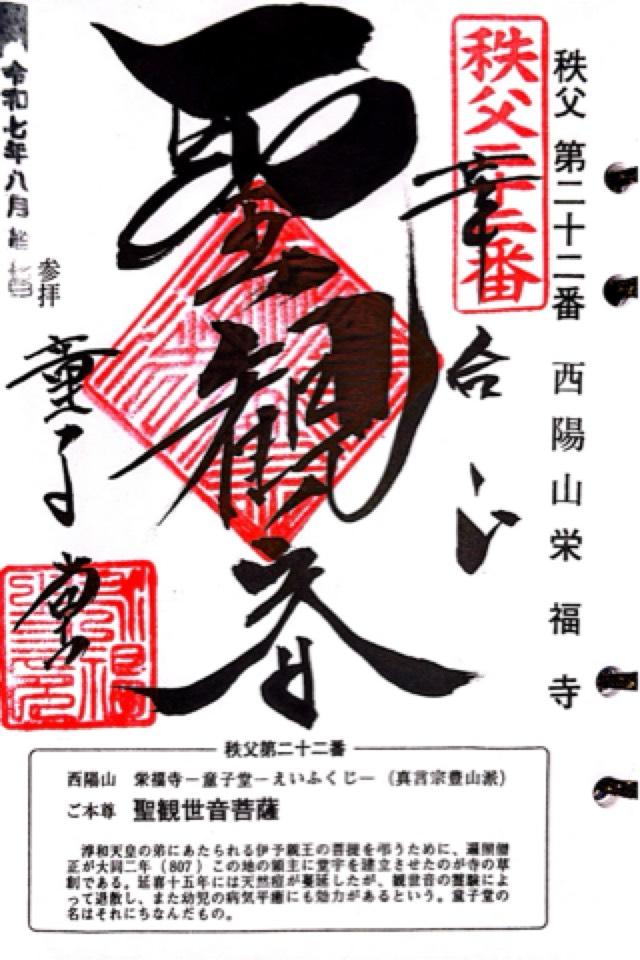 秩父 第二十二番 西陽山栄福寺
秩父二十二番
奉
拝
聖観音
令和七年八月
参拝
童子堂
秩父第二十二番
西陽山 栄福寺－童子堂－えいふくじ－（真言宗豊山派）
ご本尊 聖観世音菩薩
淳和天皇の弟にあたられる伊予親王の菩提を弔うために、遍照僧
正が大同二年（807）この地の領主に堂宇を建立させたのが寺の草
創である。延喜十五年には天然痘が蔓延したが、観世音の霊験によ
って退散し、また幼児の病気平癒にも効力があるという。童子堂の
名はそれにちなんだもの。